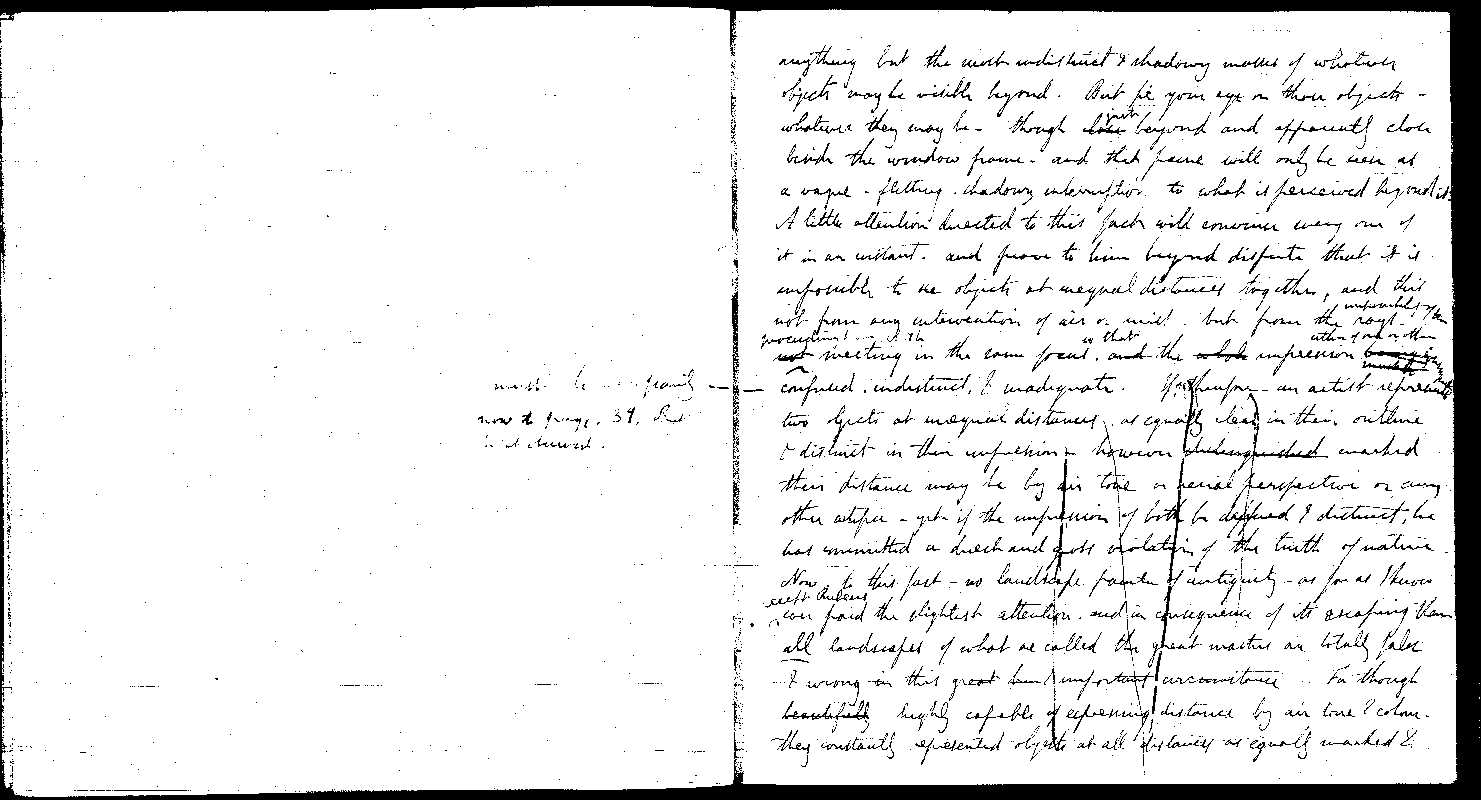 must be family
now to page. 37. But
anything but the most indistinct & shadowy masses of whatever
objects may be visible beyond. But fix your eye on those objects -
whatever they may be - though close just beyond and apparently close
beside the window frame - and that frame will only be seen as
a vague - flitting. shadowy interruption to what is perceived beyond it.
A little attention directed to this fact will convince every one of
it in an instant. and prove to him beyond dispute that it is
impossible to see objects at unequal distances together, and this
not from any intervention of air or mist. but from the impossibility of the rays
proceeding
not meeting in the same focus. so that and the whole impression either of one or other
confused, indistinct, & inadequate. If, therefore - an artist represents
two objects at unequal distances, as equally clear in their outline
& distinct in their impression - however distinguished marked
their distance may be by air tone or aerial perspective or any
other artifice - yet if the impression of both be defined & distinct, he
has committed a direct and gross violation of the truth of nature.
Now to this fact - no landscape painter of antiquity - as far as I know
except Rubens
ever paid the slightest attention. and in consequence of its escaping them
all landscapes of what are called the great masters are totally false
& wrong in this great and important circumstance. For though
beautifully highly capable of expressing distance by air tone & colour.
they constantly represented objects at all distances as equally marked &